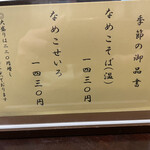 季節の御品書
なめこそば(温)
一四三〇円
なめこせいろ
一四三〇円
◎大盛りは二二〇円増し